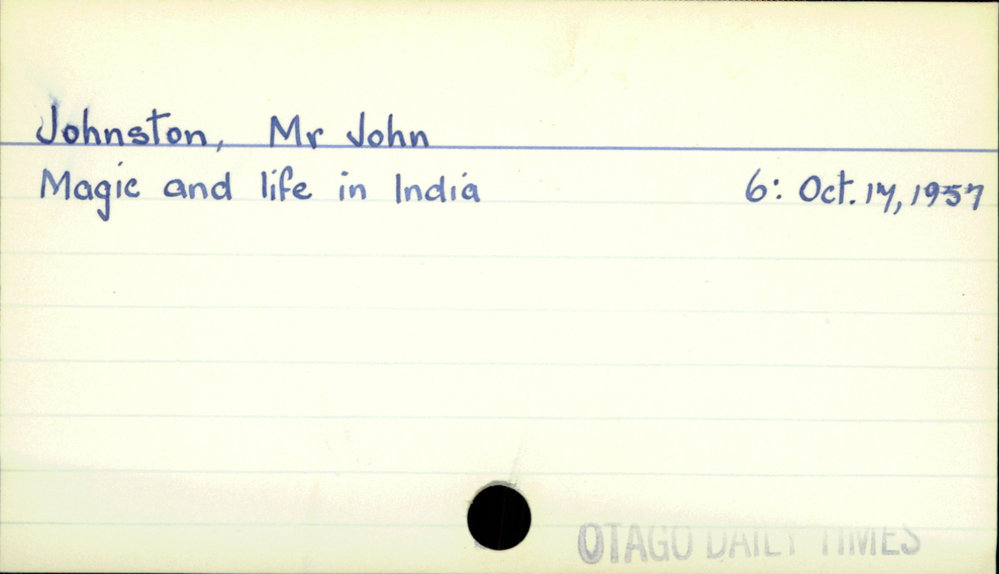 Johnston, Mr John
Magic and life in India 6: Oct. 14, 1957
OTAGO DAILY TIMES